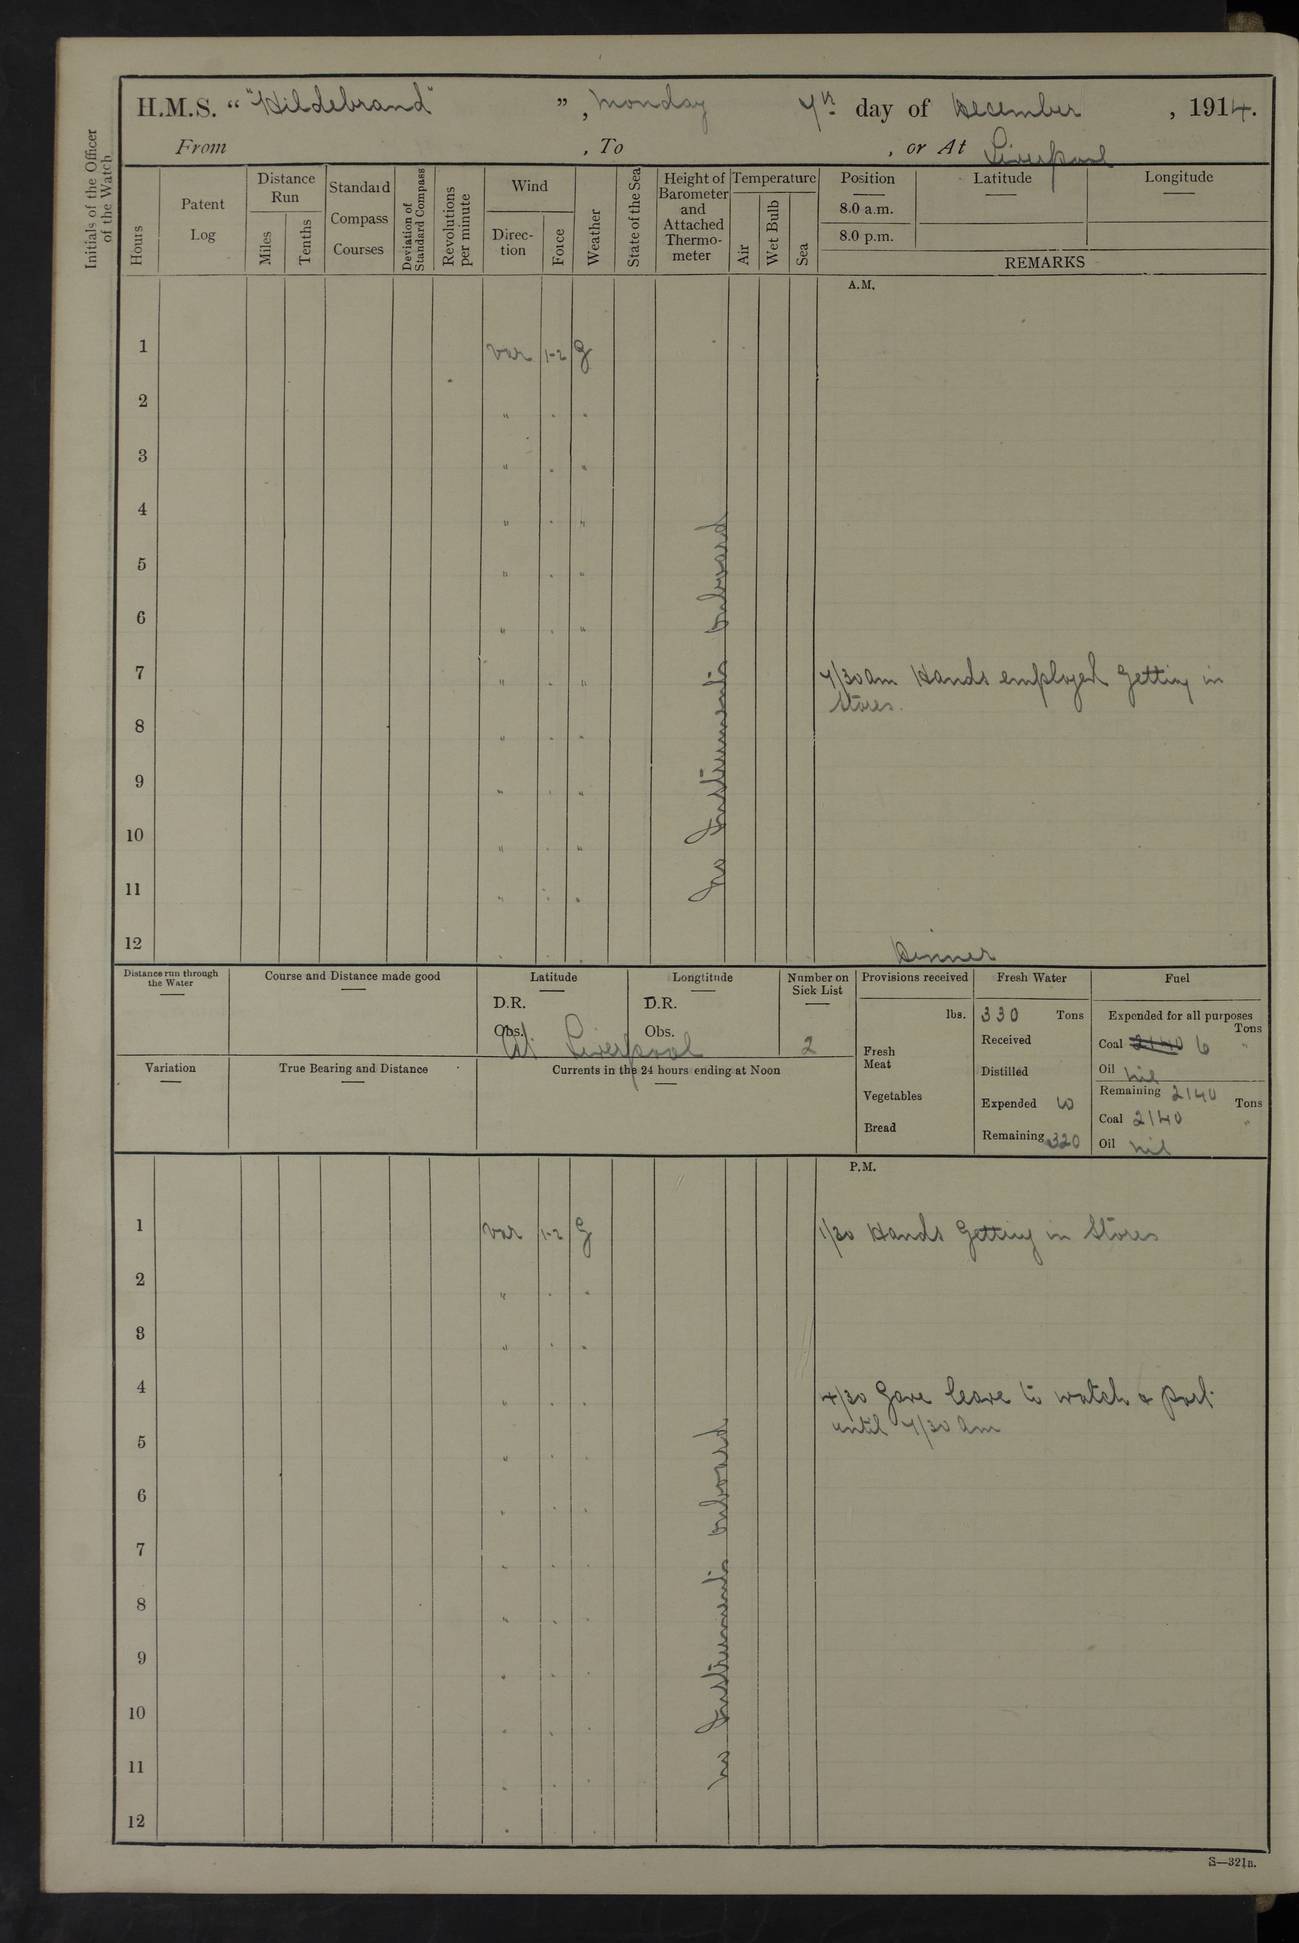 H.M.S. “ "Hildebrand" ”, Monday 7th day of December, 1914.
From , To , or At Liverpool
Initials of the Officer of the Watch
Hours
Patent Log
Distance Run
Miles
Tenths
Standard Compass Courses
Deviation of Standard Compass
Revolutions per minute
Wind
Direction
Force
Weather
State of the Sea
Height of Barometer and Attached Thermometer
Temperature
Air
Wet Bulb
Sea
Position
8.0 a.m.
8.0 p.m.
Latitude
Longitude
REMARKS
A.M.
1 Var 1-2 g
2 " . "
3 " . "
4 " . "
5 " . "
6 " . "
7 " . " 7/30am Hands employed getting in
Stores.
8 " . "
9 " . "
10 " . "
11 " . "
12 Dinner
No Instruments onboard
Distance run through the Water
Course and Distance made good
Latitude
D.R.
Obs.
Longtitude
D.R.
Obs.
At Liverpool
Number on Sick List
2
Provisions received
lbs.
Fresh Meat
Vegetables
Bread
Fresh Water
330 Tons
Received
Distilled
Expended 10
Remaining 320
Fuel
Expended for all purposes
Tons
Coal 2140 6 "
Oil nil
Remaining 2140
Tons
Coal 2140 "
Oil nil
Variation
True Bearing and Distance
Currents in the 24 hours ending at Noon
P.M.
1 Var 1-2 g 1/30 Hands Getting in Stores
2 " . "
3 " . "
4 " . " 4/30 Gave leave to watch & part
until 7/30 am
5 " . "
6 " . "
7 " . "
8 " . "
9 " . "
10 " . "
11 " . "
12 "
No Instruments onboard
S—321B.